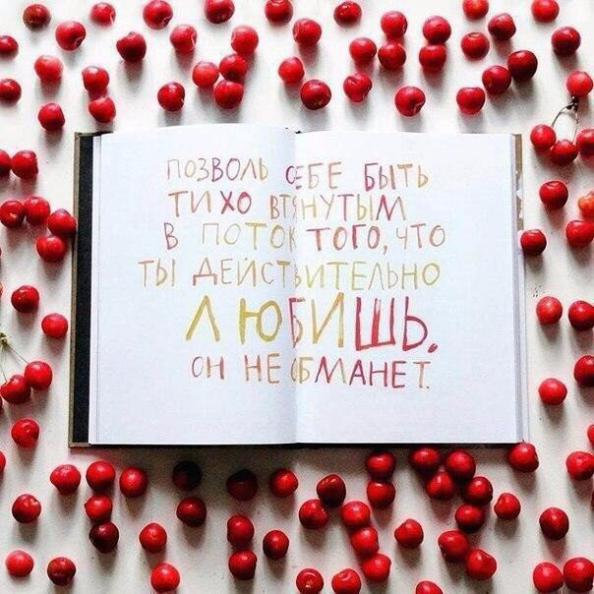 ПОЗВОЛЬ СЕБЕ БЫТЬ
ТИХО ВТЯНУТЫМ
В ПОТОК ТОГО, ЧТО
ТЫ ДЕЙСТВИТЕЛЬНО
ЛЮБИШЬ.
ОН НЕ ОБМАНЕТ.